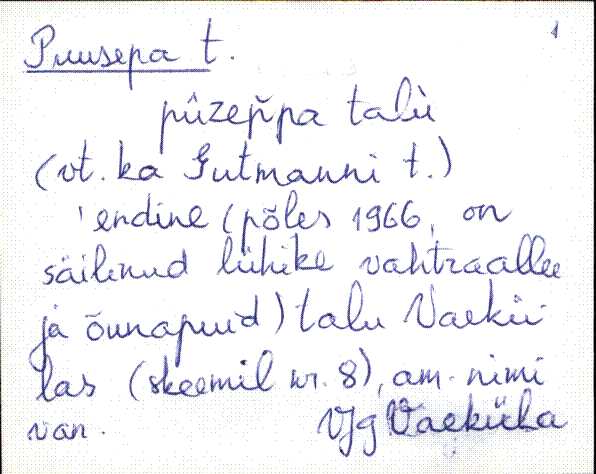 1
Puusepa t.
pûzep̆pa talù
(vt. ka Gutmanni t.)
'endine (põles 1966, on
säilinud lühike vahtraallee
ja õunapuid) talu Vaekü-
las (skeemil nr. 8), am. nimi
van. VJg Vaeküla